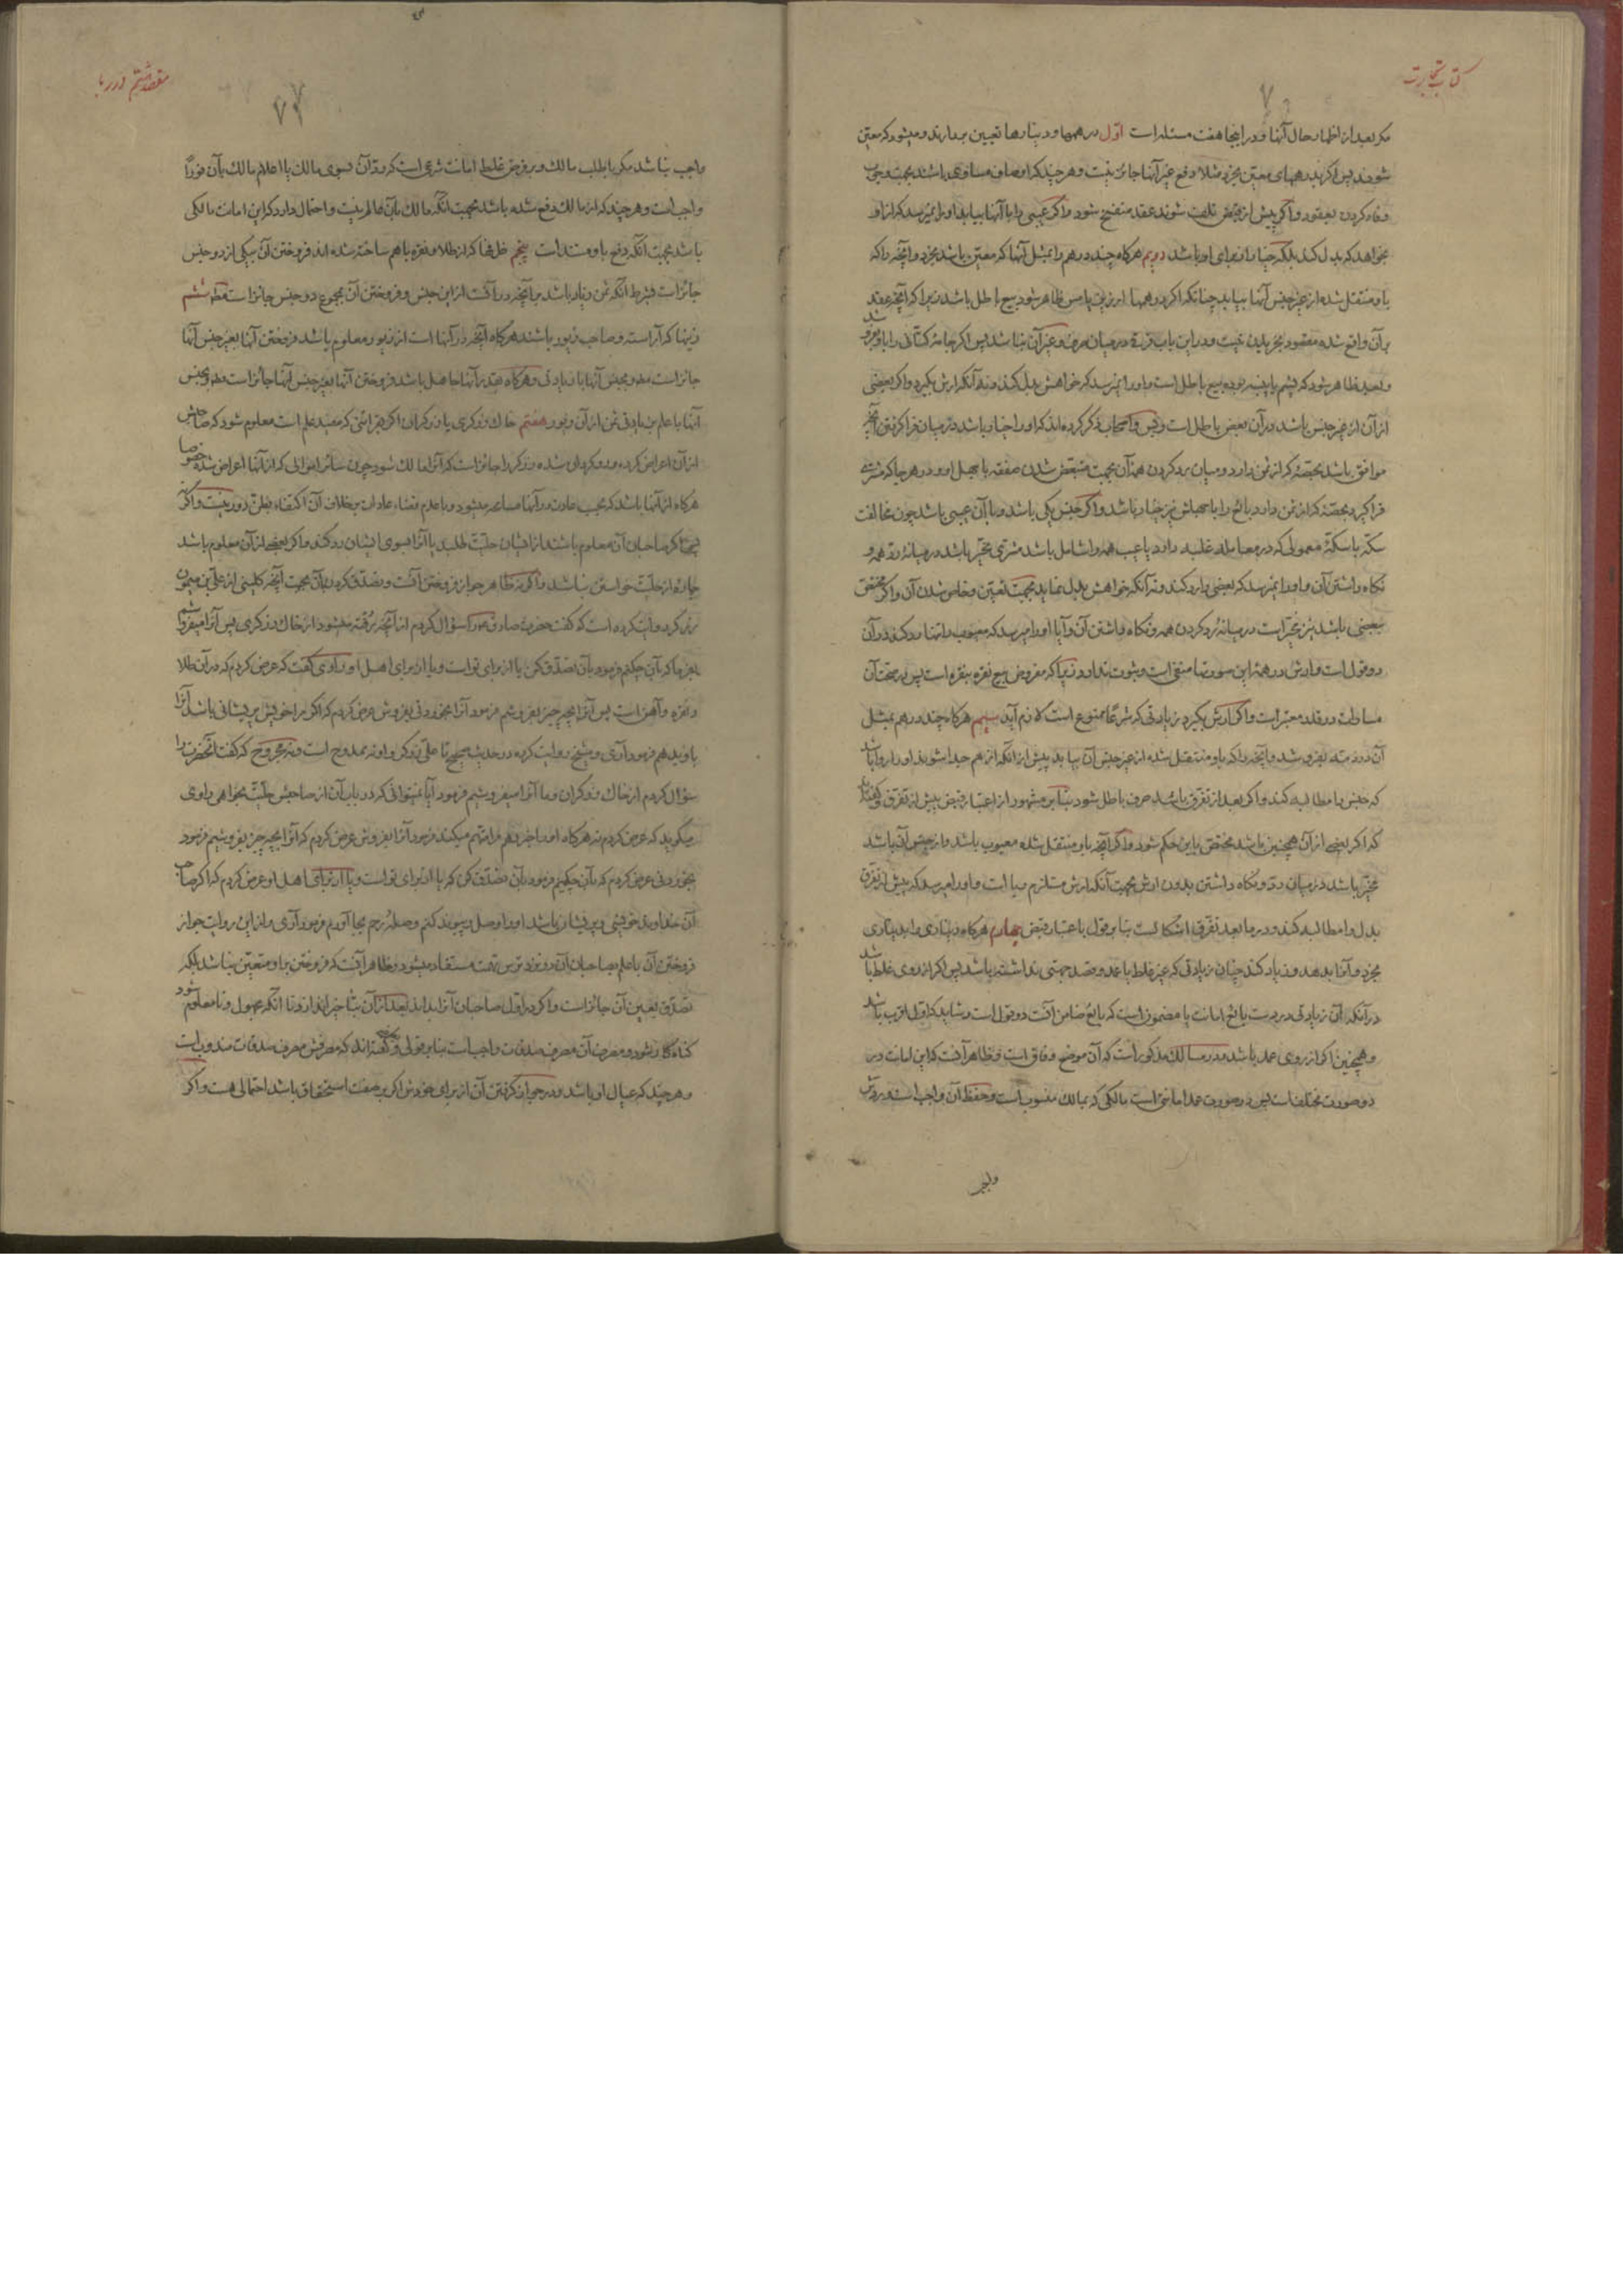 کتاب تجارت
مکر بعد از اظهار حال آنها و در اینجا هفت مسئله است اوّل درهمها و دینارها تعیین برمیدارند و میشود که معیّن
شوند پس اکر بدرهمهای معیّن بخرد مثلا دفع غیر آنها جائز نیست و هر چند که اوصاف مساوی باشند بجهت وجوب
وفا کردن بعقود و اکر پیش از قبض تلف شوند عقد منفسخ شود و اکر عیبی را با آنها بیابد او را نمیرسد که از او
بخواهد که بدل کند بلکه خیار از برای او باشد دویم هرکاه چند درهم را بمثل آنها که معیّن باشد بخرد و آنچه را که
باو منتقل شده از غیر جنس آنها بیابد چنانکه اکر درهمها ارزیز یا مس ظاهر شود بیع باطل باشد زیرا که آنچه عقد
برآن واقع شده مقصود بخریدن نیست و در این باب فرق در میان صرف و غیر آن نباشد پس اکر جامهٔ کتانی را باو بفروشد
و بعد ظاهر شود که پشم یا پنبه بوده بیع باطل است و او را نمیرسد که خواهش بدل کند و نه آنکه ارش بکیرد و اکر بعضی
از آن از غیر جنس باشد در آن بعض باطل است و بس و اصحاب ذکر کرده اند که او را خیار باشد در میان فرا کرفتن آنچه
موافق باشد بحصّهٔ که از ثمن دارد و میان رد کردن همهٔ آن بجهت متبعّض شدن صفقه با جهل او و در هر جا که مشتری
فرا کیرد بحصّهٔ که از ثمن دارد بائع را با جهلش نیز خیار باشد و اکر جنس یکی باشد و با آن عیبی باشد چون مخالفت
سکّه با سکّهٔ معمولی که در معامله غلبه دارد یا عیب همه را شامل باشد مشتری مخیّر باشد در میانهٔ ردّ همه و
نکاه داشتن آن و او را نمیرسد که بعضی را رد کند و نه آنکه خواهش بدل نماید بجهت تعیین و خاص شدن آن و اکر مختصّ
ببعضی باشد نیز مخیّر است در میانهٔ رد کردن همه و نکاه داشتن آن و آیا او را میرسد که معیوب را تنها رد کند در آن
دو قول است و ارش در همهٔ این صورتها منتفی است و ثبوت ندارد زیرا که مفروض بیع نقره بنقره است پس در صحّت آن
مساوات در قدر معتبر است و اکر ارش بکیرد زیادتی که شرعًا ممنوع است لازم آید سیم هرکاه چند درهم بمثل
آن در ذمّه بفروشد و آنچه را که باو منتقل شده از غیر جنس آن بیابد پیش از آنکه از هم جدا شوند او را روا باشد
که جنس را مطالبه کند و اکر بعد از تفرّق باشد صرف باطل شود بنابر مشهور از اعتبار قبض پیش از تفرّق و کفته اند
که اکر بعضی از آن همچنین باشد مختصّ باین حکم شود و اکر آنچه باو منتقل شده معیوب باشد و از جنس آن باشد
مخیّر باشد در میان ردّ و نکاه داشتن بدون ارش بجهت آنکه ارش مستلزم ربا است و او را میرسد که پیش از تفرّق
بدل را مطالبه کند و در ما بعد تفرّق اشکالست بنابر قول باعتبار قبض چهارم هرکاه دیناری را بدیناری
بخرد و آنرا بدهد و زیاد کند چنان زیادتی که غیر غلط یا عمد و قصد جهتی نداشته باشد پس اکر از روی غلط باشد
در آنکه آن زیادتی در دست بائع امانت یا مضمون است که بائع ضامن آنست دو قول است و شاید که اوّل اقرب باشد
و همچنین اکر از روی عمد باشد و در مسالك مذکور است که آن موضع وفاق است و ظاهر آنست که این امانت در
دو صورت مختلف است پس در صورت عمد امانتی است مالکی که بمالك منسوب است و حفظ آن واجب است و ردّش
واجب
مقصد هشتم در ربا
۷۲
واجب نباشد مکر با طلب مالك و بر فرض غلط امانت شرعی است که ردّ آن بسوی مالك یا اعلام مالك بآن فورًا
واجب است و هر چند که از مالك دفع شده باشد بجهت آنکه مالك بآن عالم نیست و احتمال دارد که این امانت مالکی
باشد بجهت آنکه دفع باو مستند است پنجم ظرفها که از طلا و نقره با هم ساخته شده اند فروختن آن بیکی از دو جنس
جائز است بشرط آنکه ثمن زیاد باشد بر آنچه در آنست از این جنس و فروختن آن بمجموع دو جنس جائز است مطلقا ششم
زینها که آراسته و صاحب زیور باشند هرکاه آنچه در آنها است از زیور معلوم باشد فروختن آنها بغیر جنس آنها
جائز است مطلقا و بجنس آنها با زیادتی و هرکاه بقدر آنها جاهل باشد فروختن آنها بغیر جنس آنها جائز است مطلقا و بجنس
آنها با علم بزیادتی ثمن از آن زیور هفتم خاك زرکری یا زرکران اکر بقرائنی که مفید علم است معلوم شود که صاحبش
از آن اعراض کرده و زرکر را جائز است که آنرا مالك شود چون سائر اموالی که از آنها اعراض شده خصوصا
هرکاه از آنها باشد که بحسب عادت در آنها مسامحه میشود و با عدم قضاء عادات بخلاف آن اکتفاء بظنّ دور نیست و اکر نه
پس اکر صاحبان آن معلوم باشند از ایشان حلّیّت طلبد یا آنرا بسوی ایشان رد کند و اکر بعضی از آن معلوم باشد
چاره از حلّیّت خواستن نباشد و اکر نه ظاهر جواز فروختن آنست و تصدّق کردن بآن بجهت آنچه کلینی از علی بن میمون
زرکر روایت کرده است که کفت حضرت صادق ع را سؤال کردم از آنچه رفته میشود از خاك زرکری پس آنرا میفروشم
بفرما که بآن چکنم فرمود بآن تصدّق کن یا از برای تو است و یا از برای اهل او راوی کفت که عرض کردم که در آن طلا
و نقره و آهن است پس آنرا بچه چیز بفروشم فرمود آنرا بخوردنی بفروش عرض کردم که اکر مرا خویش پریشانی باشد آنرا
باو بدهم فرمود آری و شیخ روایت کرده در حدیث صحیح تا علی زرکر و او نه ممدوح است و نه مجروح که کفت آنحضرت را
سؤال کردم از خاك زرکران و ما آنرا میفروشیم فرمود آیا نمیتوانی که در باب آن از صاحبش حلّیّت بخواهی راوی
میکوید که عرض کردم نه هرکاه او را خبر دهم مرا متّهم میکند فرمود آنرا بفروش عرض کردم که آنرا بچه چیز بفروشیم فرمود
بخوردنی عرض کردم که بآن چکنیم فرمود بآن تصدّق کن که یا از برای تو است و یا از برای اهل او عرض کردم که اکر صاحب
آن خداوند خویشی و پریشان باشد او را وصل و پیوند کنم و صلهٔ رحم بجا آورم فرمود آری و از این روایت جواز
فروختن آن با علم بصاحبان آن در نزد ترس تهمت مستفاد میشود و ظاهر آنست که فروختن بر او متعیّن نباشد بلکه
تصدّق بعین آن جائز است و اکر در اوّل صاحبان آنرا بداند بعد از آن بتأخیر اندازد تا آنکه مجهول و نامعلوم شود
کناه کار بشود و مصرف آن مصرف صدقات واجبه است بنابر قولی و بعضی کفته اند که مصرفش مصرف صدقات مندوبه است
و هر چند که عیال او باشد و در جواز کرفتن آن از برای خودش اکر بر صفت استحقاق باشد احتمالی هست و اکر